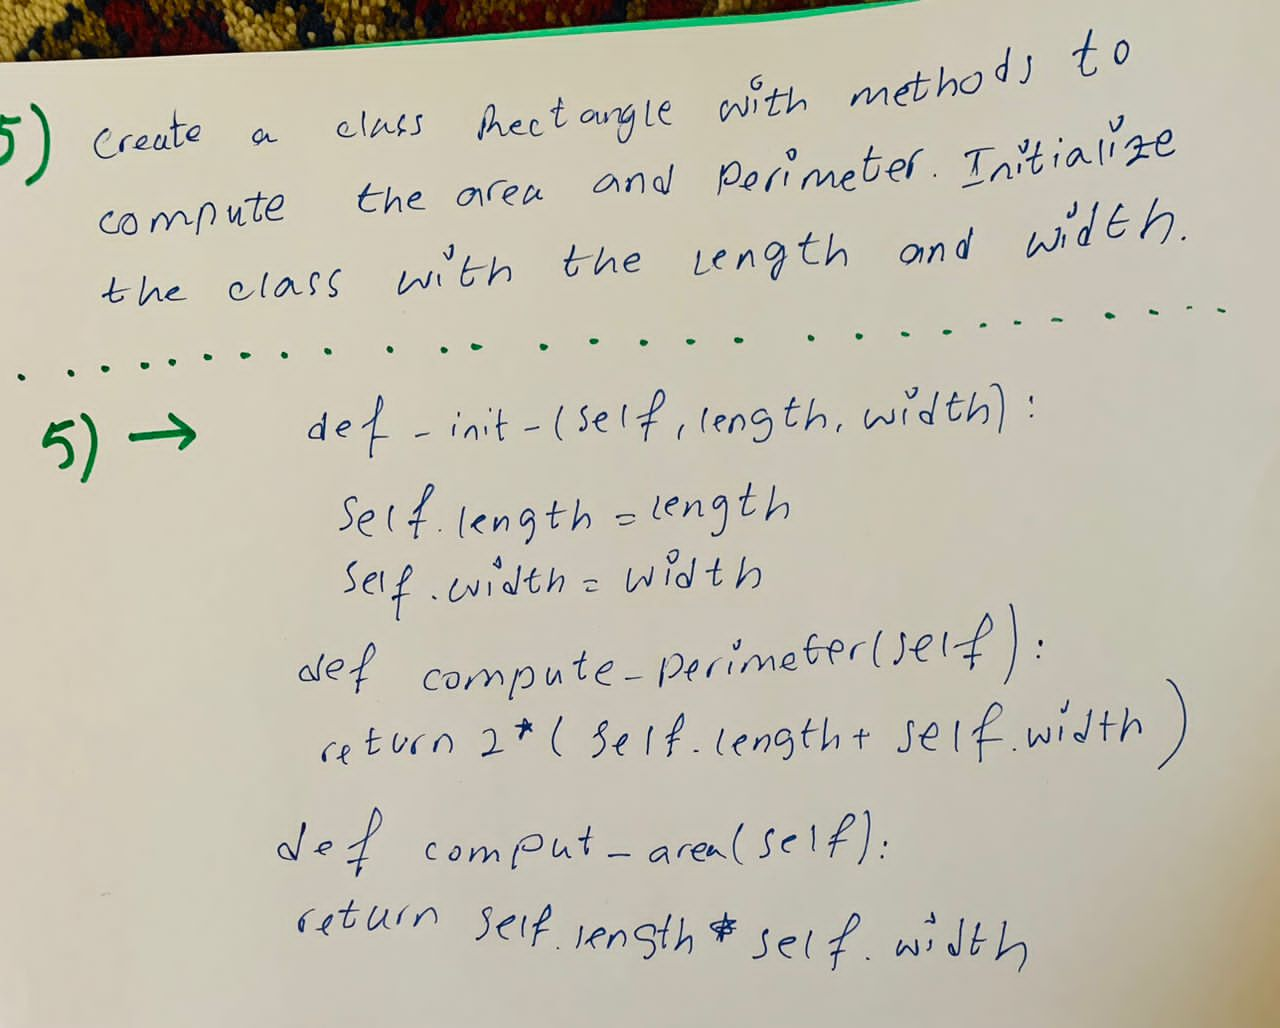 5) Create a class Rectangle with methods to
compute the area and perimeter. Initialize
the class with the Length and width.
5) → def _init_(self, length, width):
self.length = length
self.width = width
def compute_perimeter(self):
return 2*(self.length + self.width)
def comput_area(self):
return self.length * self.width